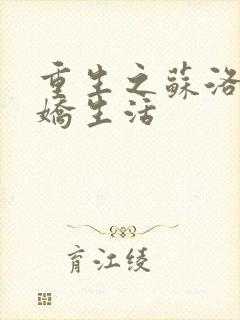 重生之蘇洛
嬌生活
育江綾